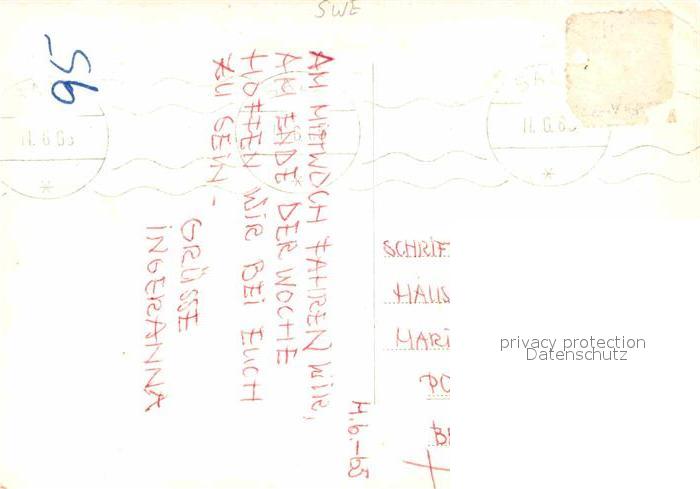 SWE
95
AM MITTWOCH FAHREN WIR,
AM ENDE DER WOCHE
HOFFEN WIR BEI EUCH
ZU SEIN -
GRÜSSE
INGERANNA
11.6.63
11.6.63
SCHRIF
HAUS
MARI
PO
privacy protection
Datenschutz